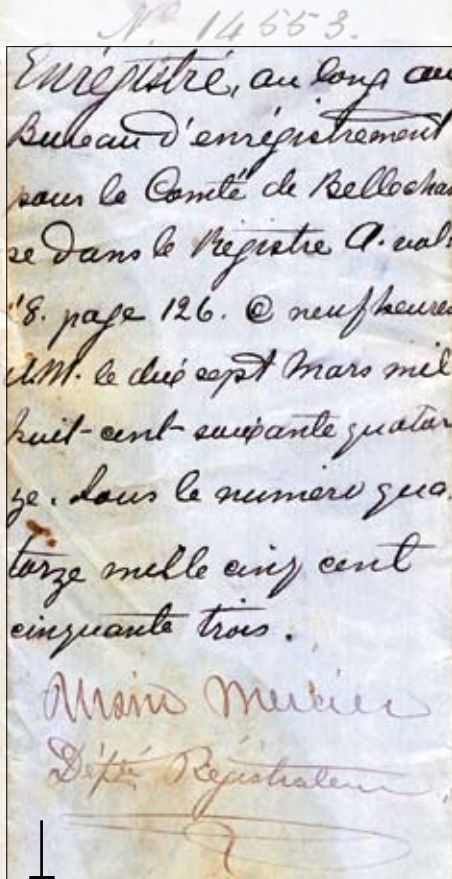 No. 14553.
Enrégistré, au long au
Bureau d'enrégistrement
pour le Comté de Bellechas
se dans le Régistre A. vol.
18. page 126. @ neuf heures
A.M. le dix sept Mars mil
huit-cent-soixante quator
ze. sous le numéro qua
torze mille cinq cent
cinquante trois.
Mercier
Députe Régistrateur